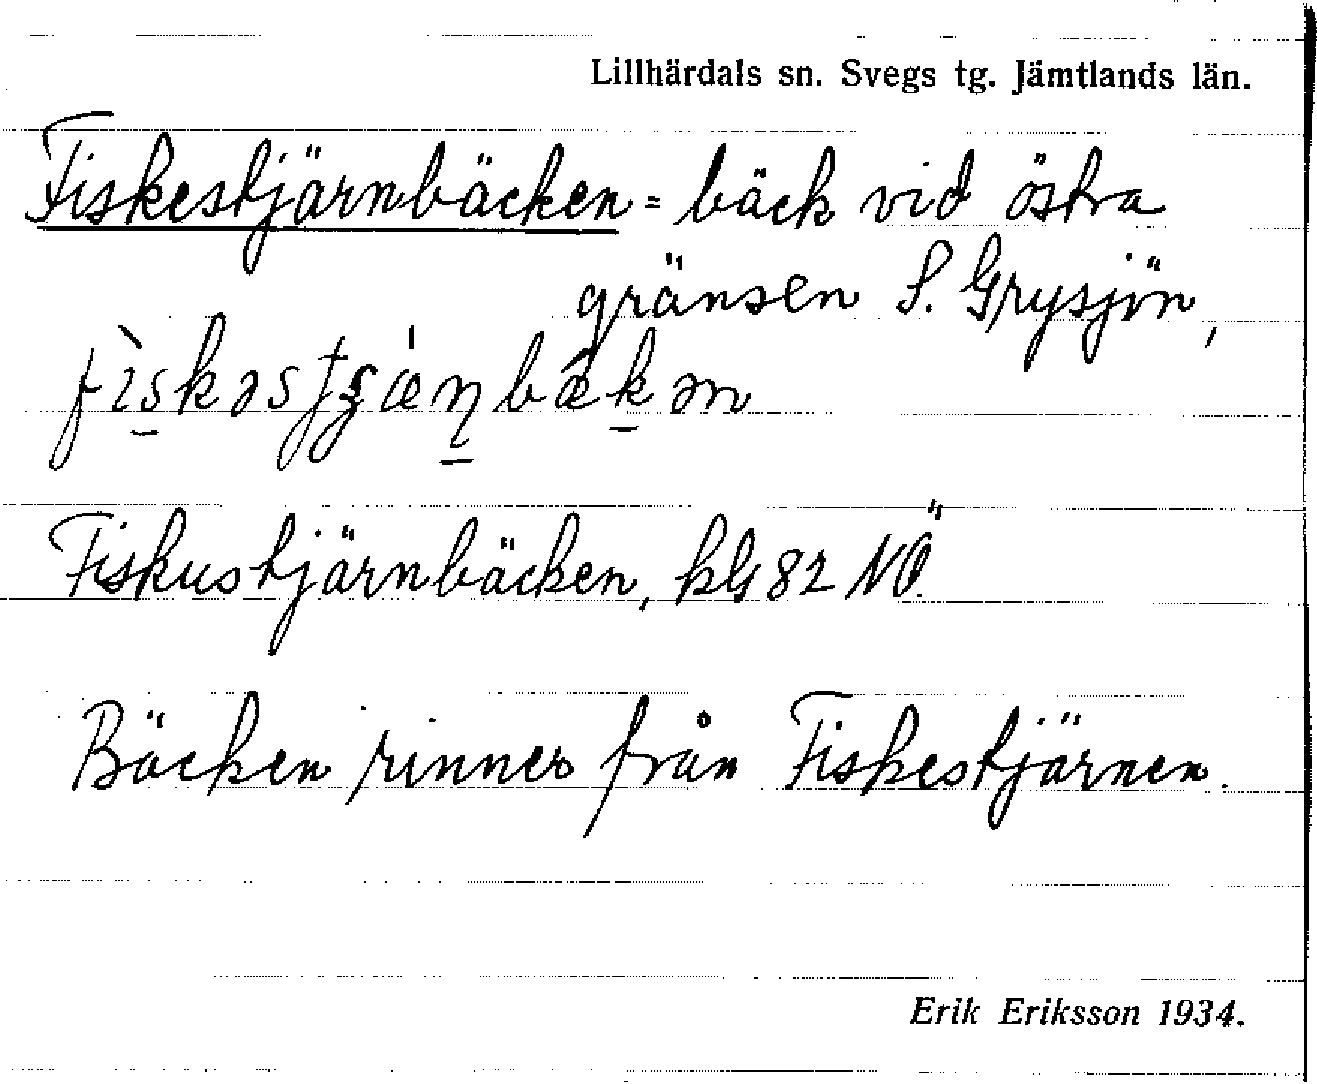 Lillhärdals sn. Svegs tg. Jämtlands län.
Fiskestjärnbäcken = bäck vid östra
gränsen S. Grysjön,
Fiskustjärnbäcken, kbl 82 NÖ.
Bäcken rinner från Fiskestjärnen.
Erik Eriksson 1934.